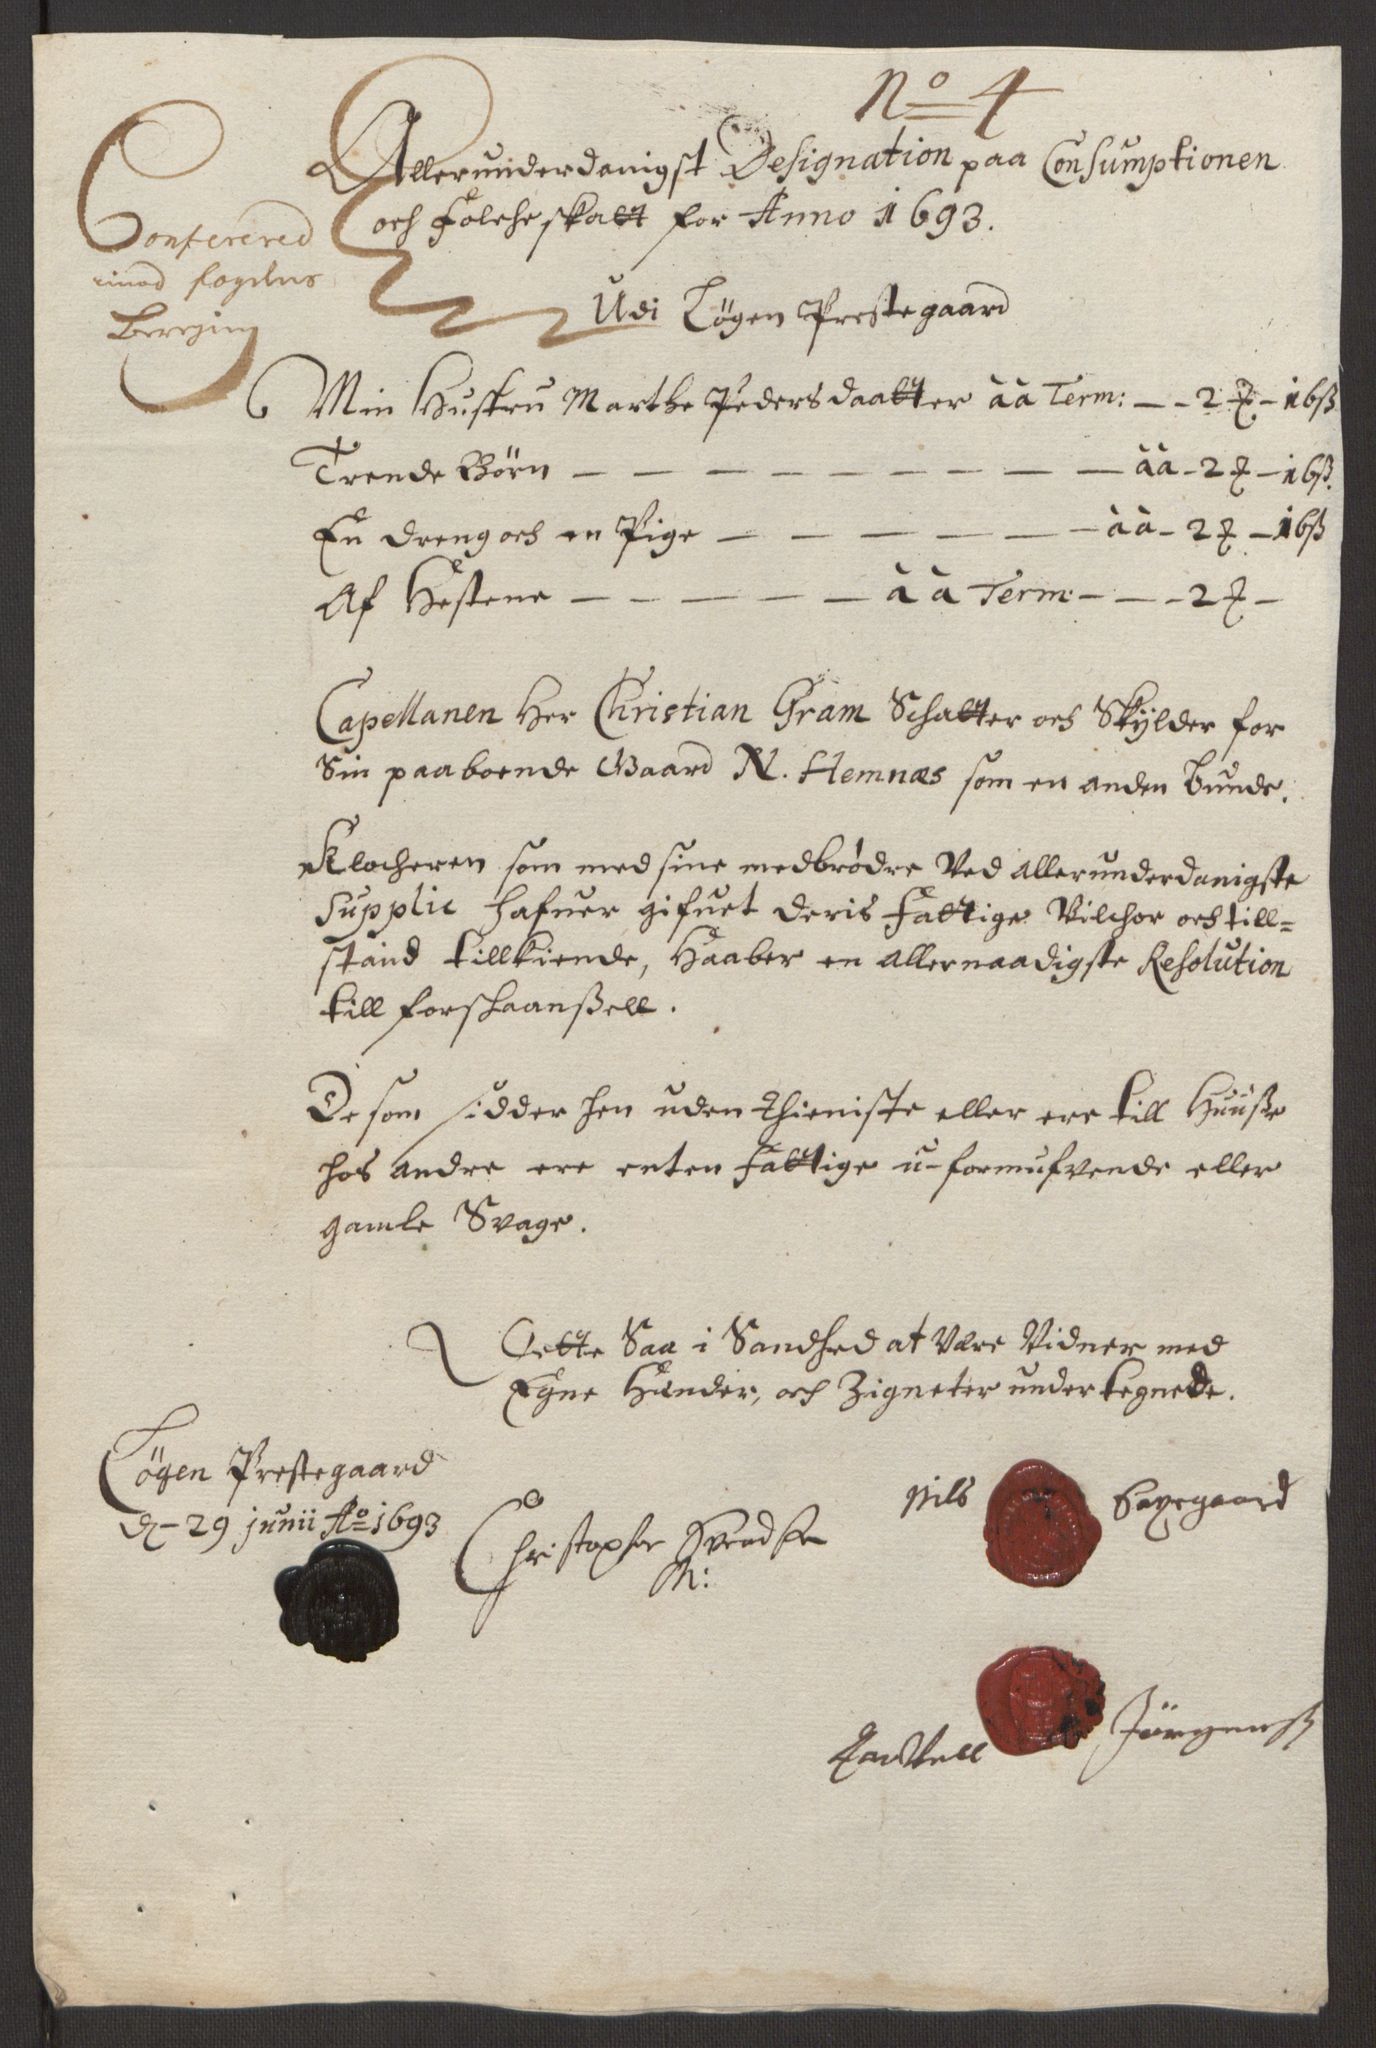 No 4
Allerunderdanigst Designation paa Consumptionen
och Folcheskatt for Anno 1693.
Conferered
imod fogdens
Beregning
Udi Løgen Prestegaard
Min Hustru Marthe Pedersdaatter àà Term: — - 2 ₰ - 16ß
Trende Börn — — — — — — — — àà - 2 ₰ - 16ß.
En dreng och en Pige — — — — — àà - 2 ₰ - 16ß
Af Hestene — — — — — àà Term: - — - 2 ₰ -
Capellanen Her Christian Gram Schatter och Skÿlder for
Sin paaboende Gaard N. Hemnæs som en anden bunde.
Klocheren som med sine medbrödre Ved allerunderdanigste
Supplic hafuer gifuet deris Fattige Vilchor och till=
stand tillkiende, Haaber en allernaadigste Resolution
till forskaanßell.
De som sidder hen uden thieniste eller ere till Huuße
hos andre ere enten Fattige u-formufvende eller
gamle Svage.
Dette Saa i Sandhed at Være Vidner med
Egne Hænder, och Zigneter underkegnede.
Løgen Prestegaard
d - 29 junii Ao 1693
Christopher Svendsen
Nils Sayegaard
Jörgenß